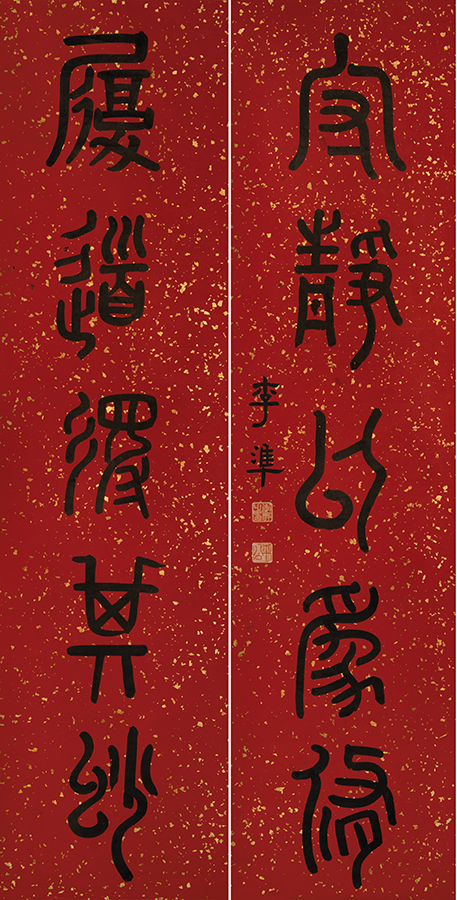 守靜以為修
李準
履道得其妙